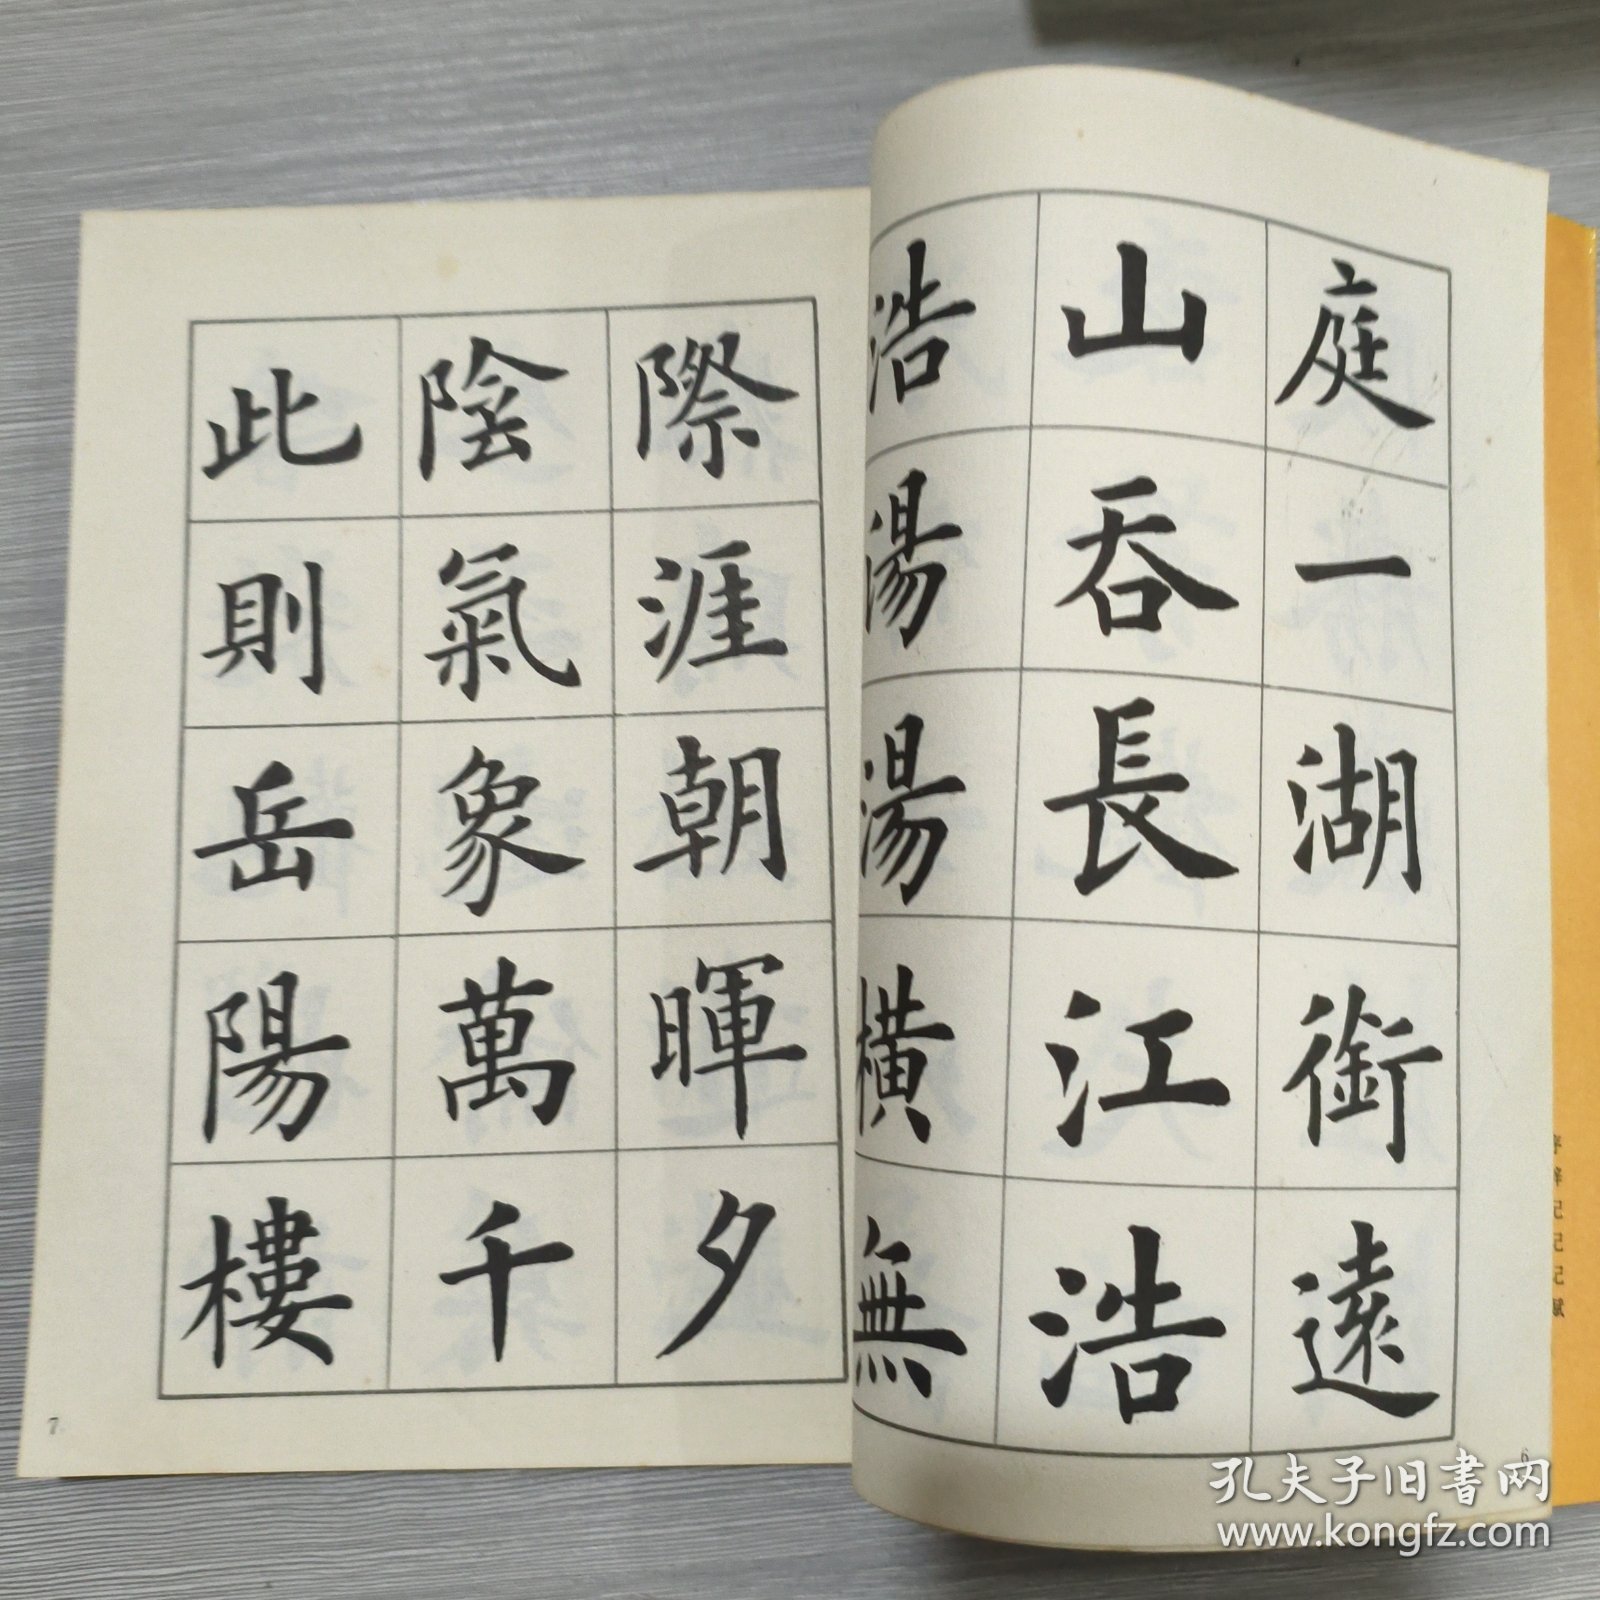 庭一湖銜遠
山吞長江浩
浩湯湯橫無
際涯朝暉夕
陰氣象萬千
此則岳陽樓
7
6
序
辭
記
記
記
賦
孔夫子旧书网
www.kongfz.com